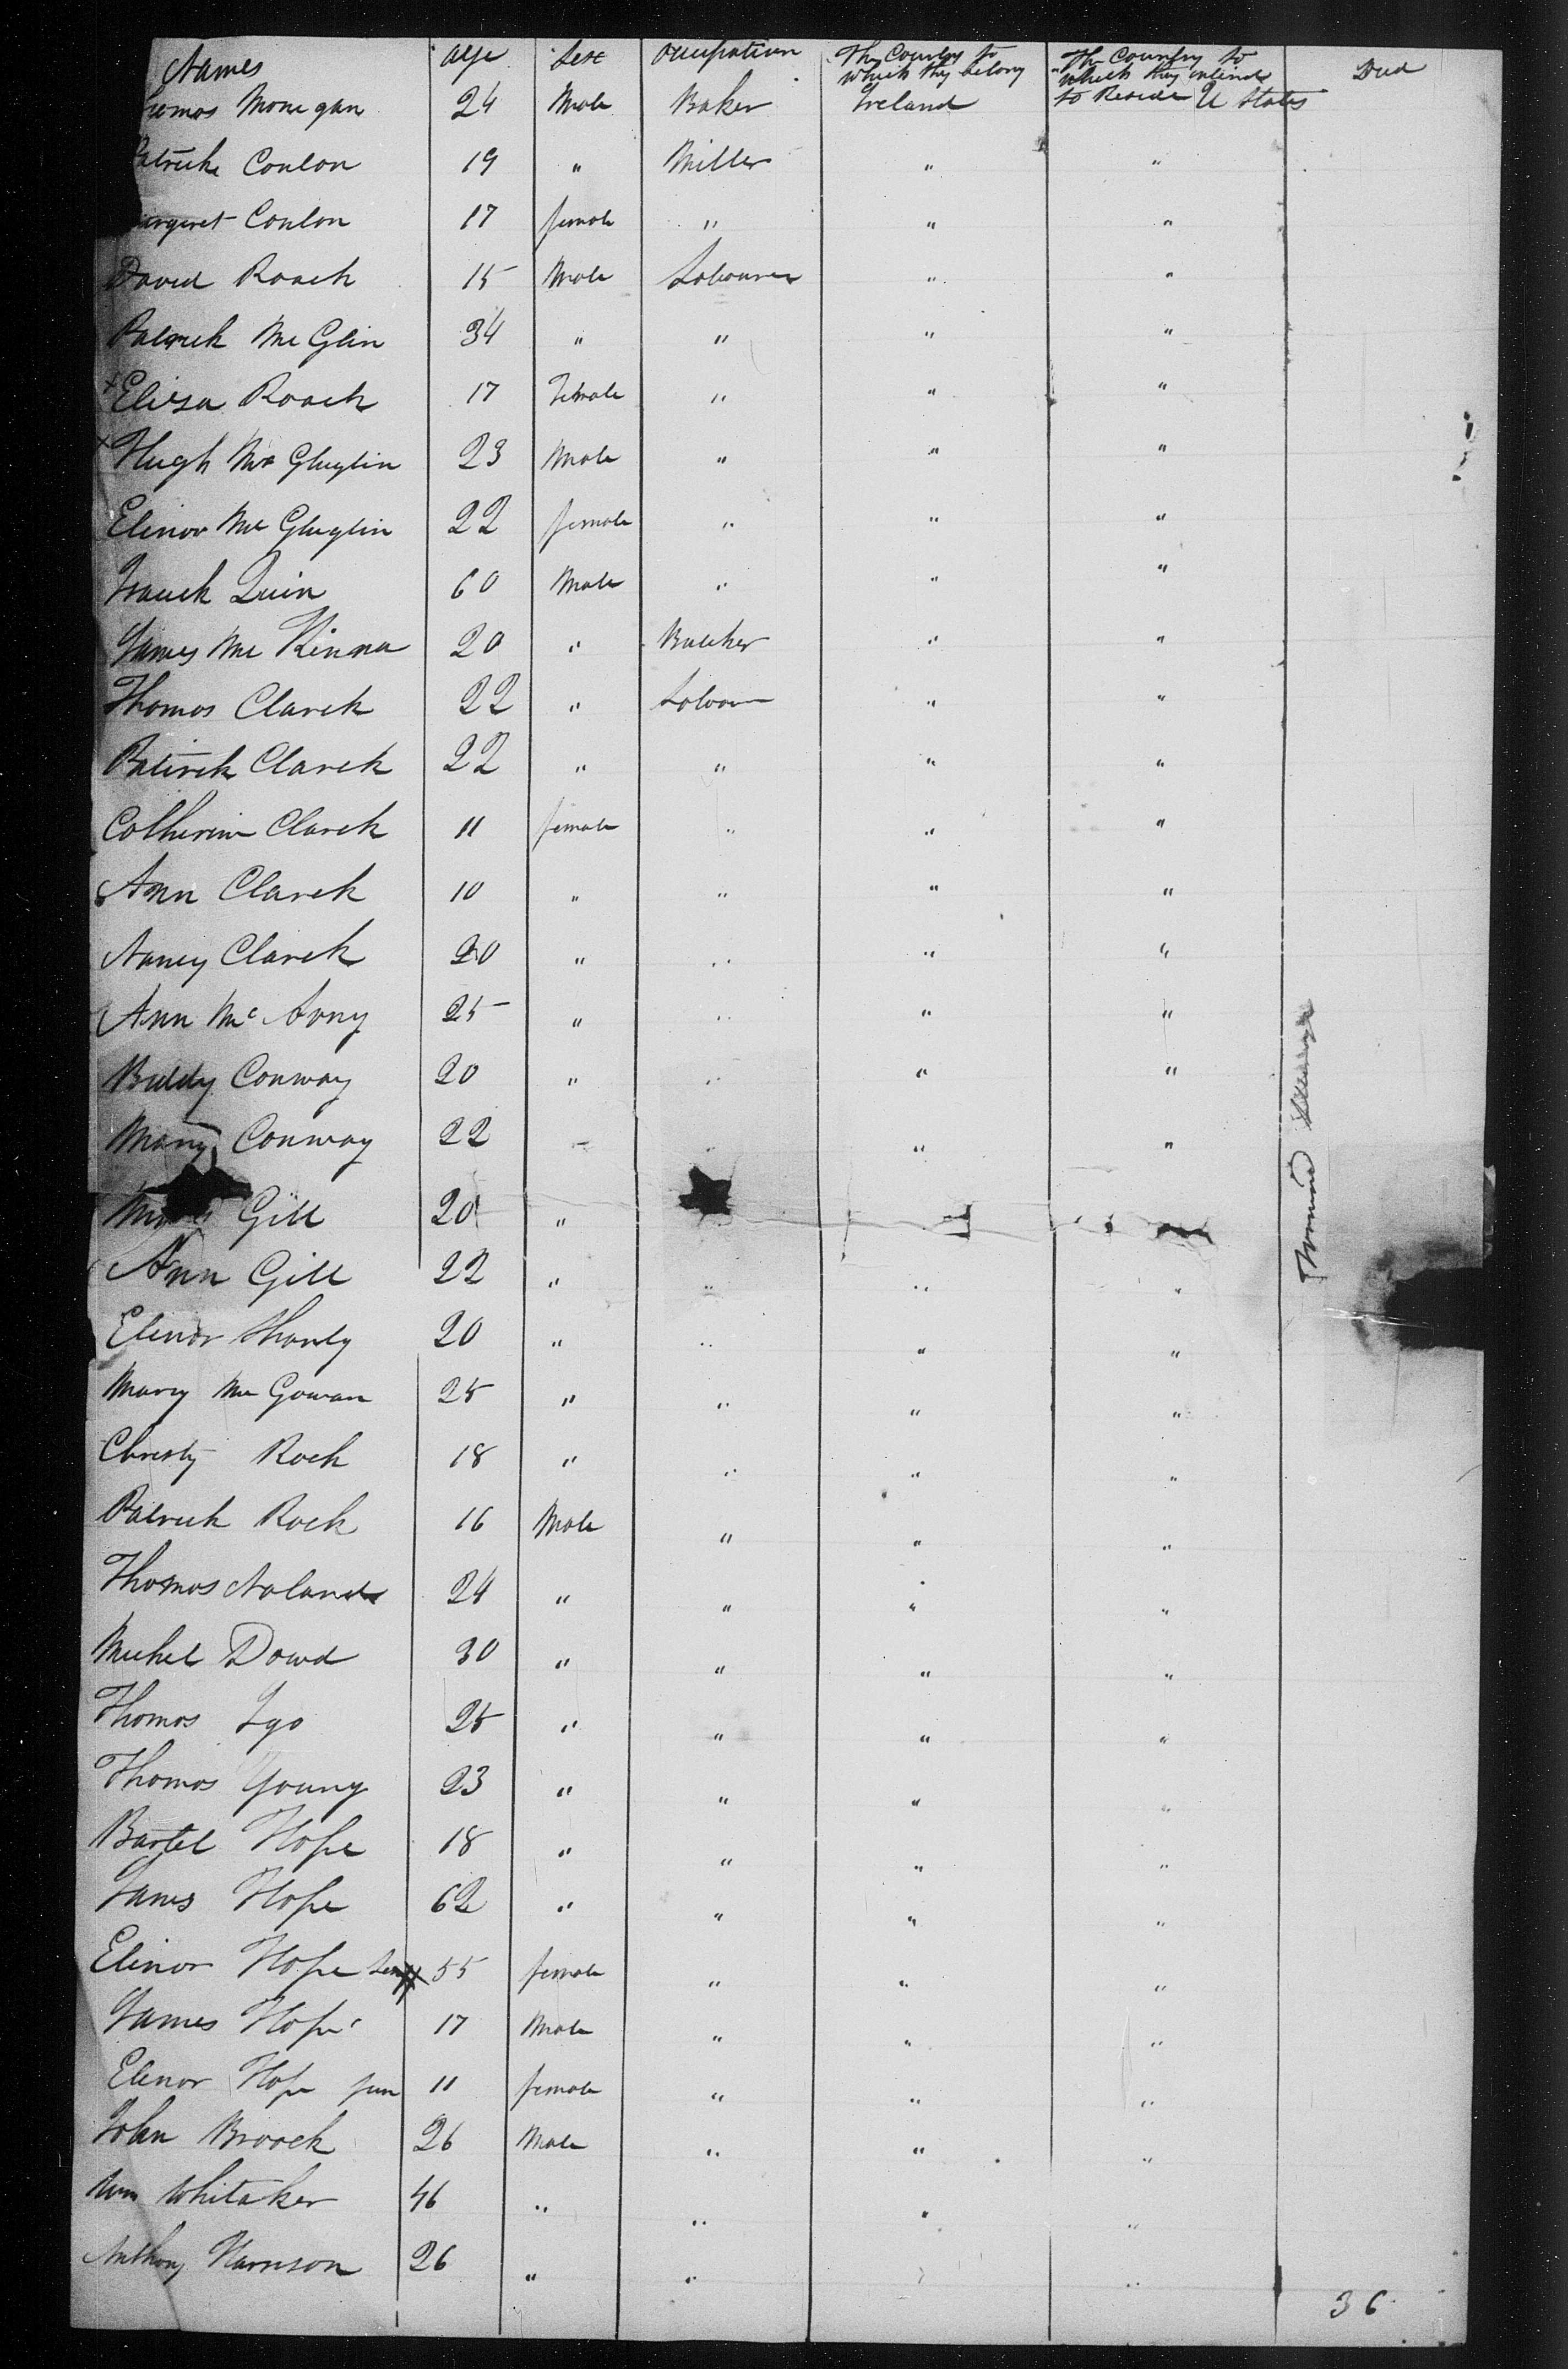 Names age Sex occupation The Country to which they belong The Country to which they intend to Reside Died
Monegan 24 Male Baker Ireland U States
Conlon 19 " Miller " "
Conlon 17 female " " "
David Roach 15 Male Labourer " "
Patrick Mc Glin 34 " " " "
Eliza Roach 17 Female " " "
Hugh Mc Gluglin 23 Male " " "
Elinor Mc Gluglin 22 female " " "
Quin 60 Male " " "
James Mc Kinna 20 " Butcher " "
Thomas Clarek 22 " " "
Patirck Clarek 22 " " " "
Catherine Clarek 11 female " " "
Ann Clarek 10 " " " "
Nancy Clarek 20 " " " "
Ann Mc 25 " " " "
Biddy Conway 20 " " " "
Mary Conway 22 " " " "
Gill 20 "
Ann Gill 22 " " " "
Elinor Shanly 20 " " " "
Mary Mc Gowan 25 " " " "
Christy Rock 18 " " " "
Patrick Rock 16 Male " " "
Thomas Noland 24 " " " "
Michel Dowd 30 " " " "
Thomas Igo 25 " " " "
Thomas Young 23 " " " "
Bartel Hope 18 " " " "
James Hope 62 " " " "
Elinor Hope Sen 55 female " " "
James Hope 17 Male " " "
Elenor Hope jun 11 female " " "
John Broock 26 Male " " "
Wm Whitaker 46 " " " "
Anthony Harrison 26 " " " "
36